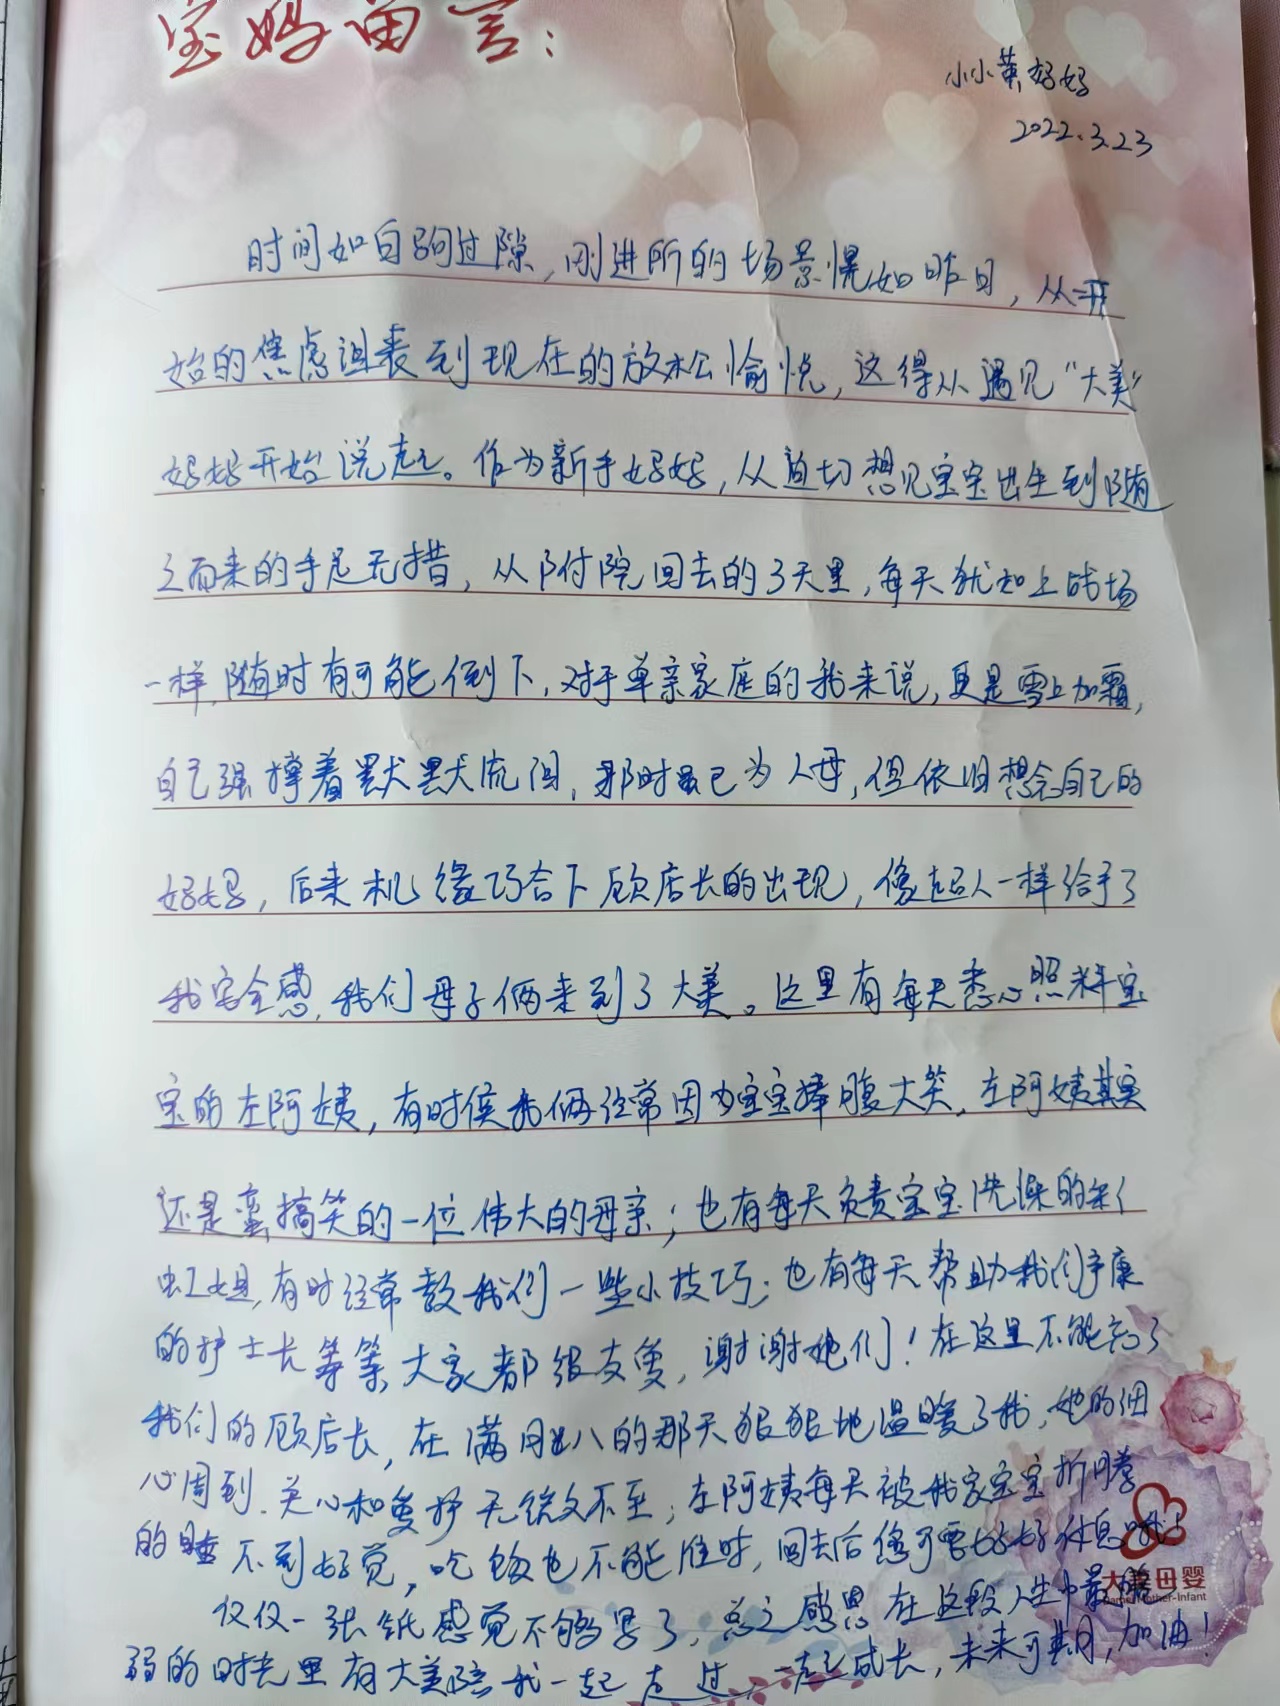 宝妈留言：
小小黄妈妈
2022.3.23
时间如白驹过隙，刚进所的场景恍如昨日，从一开
始的焦虑沮丧到现在的放松愉悦，这得从遇见“大美”
妈妈开始说起。作为新手妈妈，从迫切想见宝宝出生到随
之而来的手足无措，从附院回去的3天里，每天犹如上战场
一样，随时有可能倒下，对于单亲家庭的我来说，更是雪上加霜，
自己强撑着默默流泪，那时虽已为人母，但依旧想念自己的
妈妈，后来机缘巧合下顾店长的出现，像超人一样给予了
我安全感，我们母子俩来到了大美。这里有每天悉心照料宝
宝的左阿姨，有时候我俩经常因为宝宝捧腹大笑，左阿姨其实
还是蛮搞笑的一位伟大的母亲；也有每天负责宝宝洗澡的
虹姐，有时经常教我们一些小技巧；也有每天帮助我们产康
的护士长等等，大家都很友爱，谢谢她们！在这里不能忘了
我们的顾店长，在满月的那天狠狠地温暖了我，她的细
心周到，关心和爱护无微不至；左阿姨每天被我家宝宝折腾
的睡不到好觉，吃饭也不能准时，回去后您可要好好休息哦！
仅仅一张纸感觉不够写了，总之感恩在这段人生中最脆
弱的时光里有大美陪我一起走过，一起成长，未来可期，加油！
大美母婴
Damei Mother-Infant